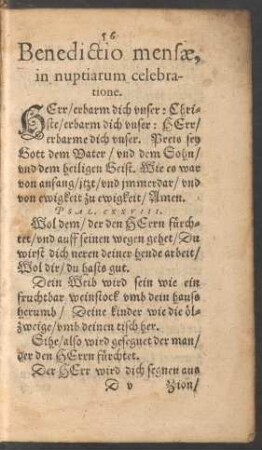 56
Benedictio mensæ,
in nuptiarum celebra-
tione.
HErr/erbarm dich vnser: Chri-
ste/erbarm dich vnser: HErr/
erbarme dich vnser. Preis sey
Gott dem Vater/ vnd dem Sohn/
vnd dem heiligen Geist. Wie es war
von anfang/jtzt/vnd jmmerdar/ vnd
von ewigkeit zu ewigkeit/ Amen.
PSAL. CXXVIII.
Wol dem/ der den HErrn fürch-
tet/vnd auff seinen wegen gehet/ Du
wirst dich neren deiner hende arbeit/
Wol dir/ du hasts gut.
Dein Weib wird sein wie ein
fruchtbar weinstock vmb dein hauss
herumb/ Deine kinder wie die öl-
zweige/vmb deinen tisch her.
Sihe/also wird gesegnet der man/
der den HErrn fürchtet.
Der HErr wird dich segnen aus
D v Zion/